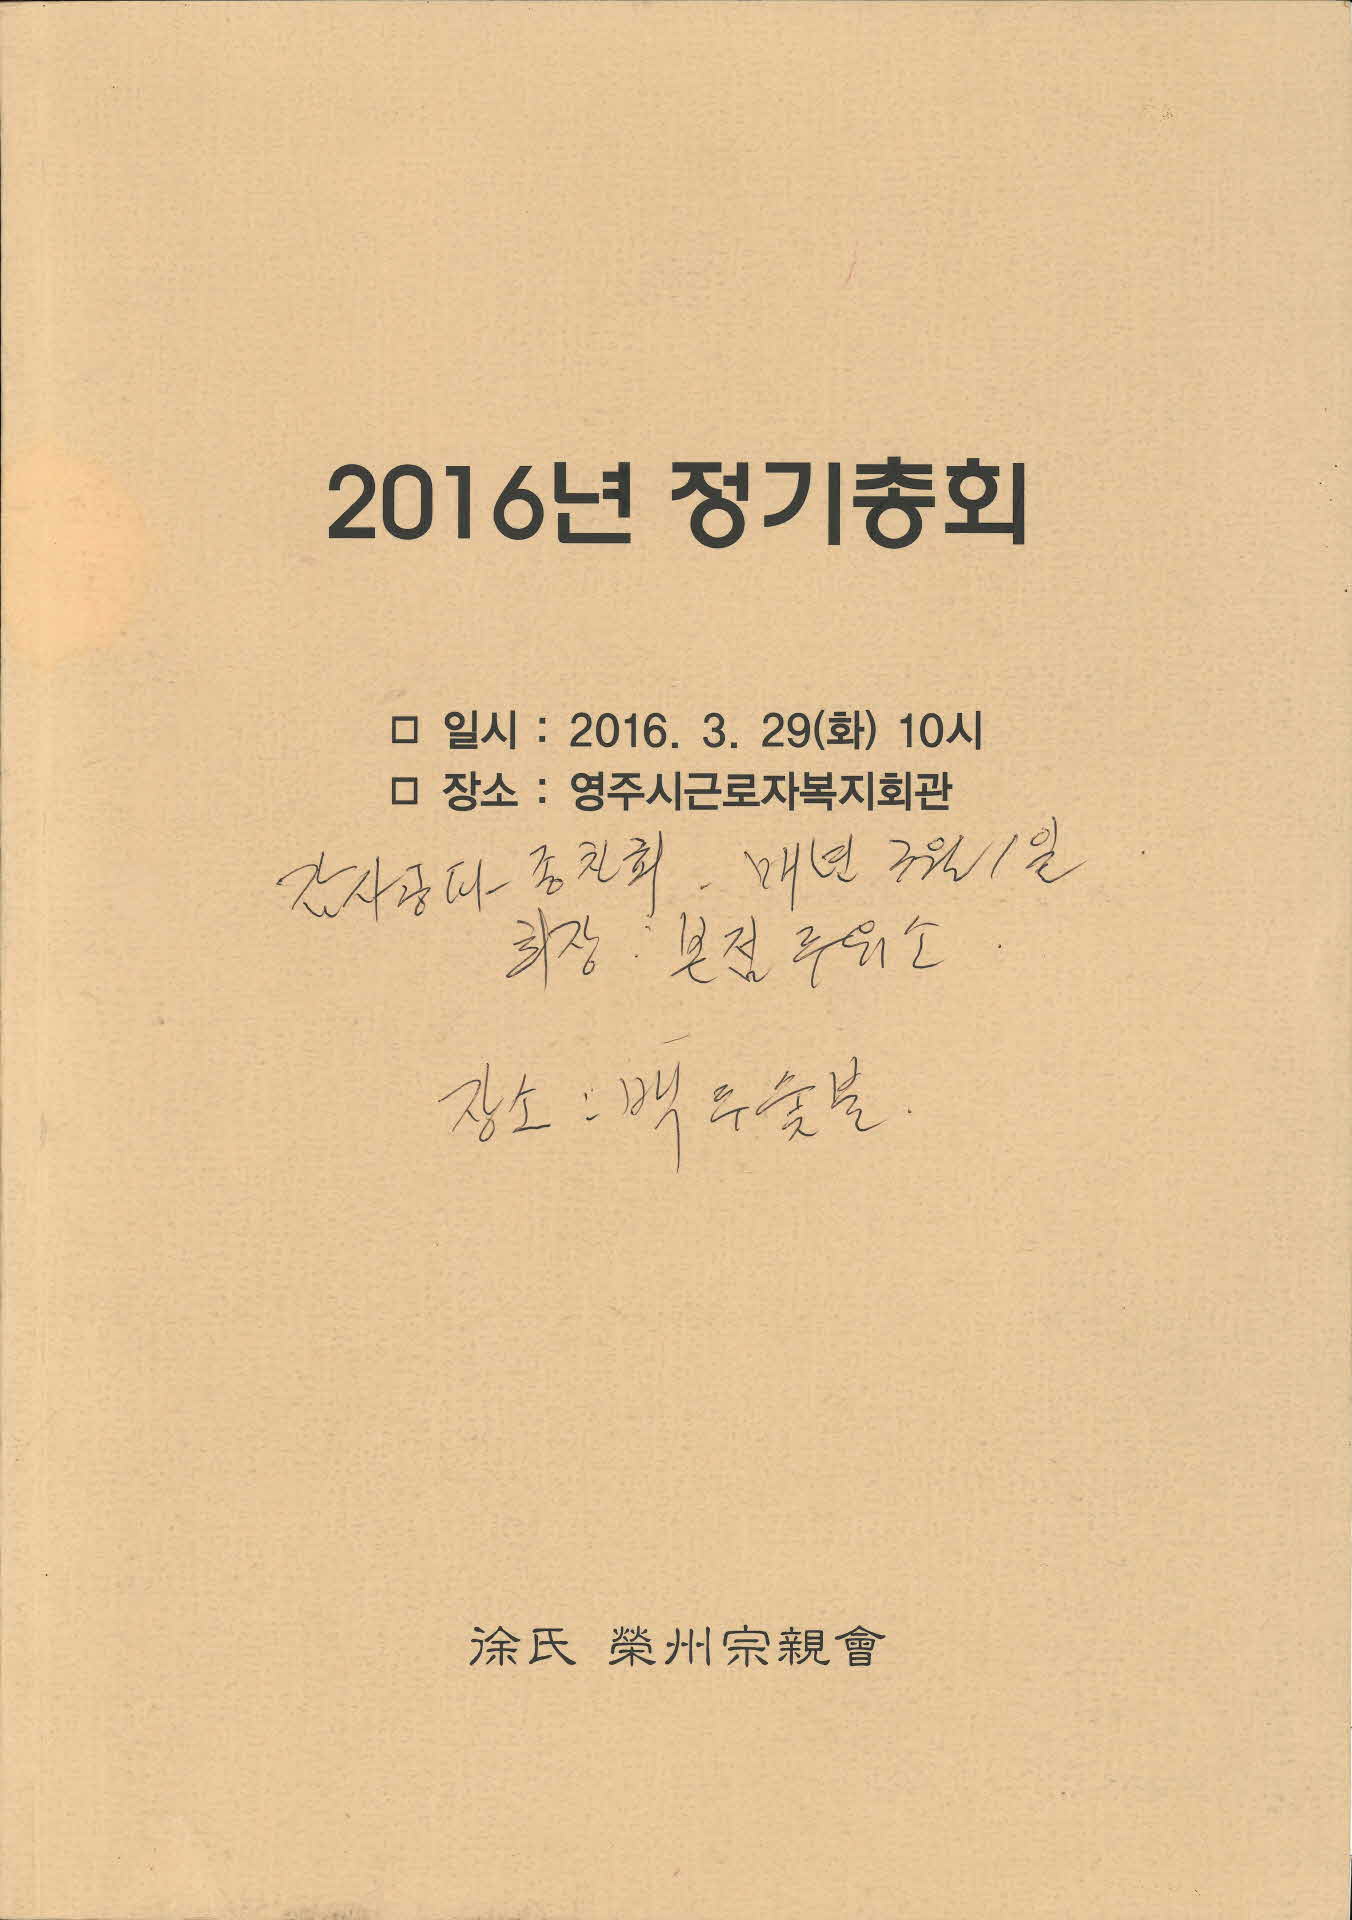 2016년 정기총회
□ 일시 : 2016. 3. 29(화) 10시
□ 장소 : 영주시근로자복지회관
감사공파 종친회 . 매년 3월 1일
회장 : 본점 주유소
장소 : 백두숯불.
徐氏 榮州宗親會